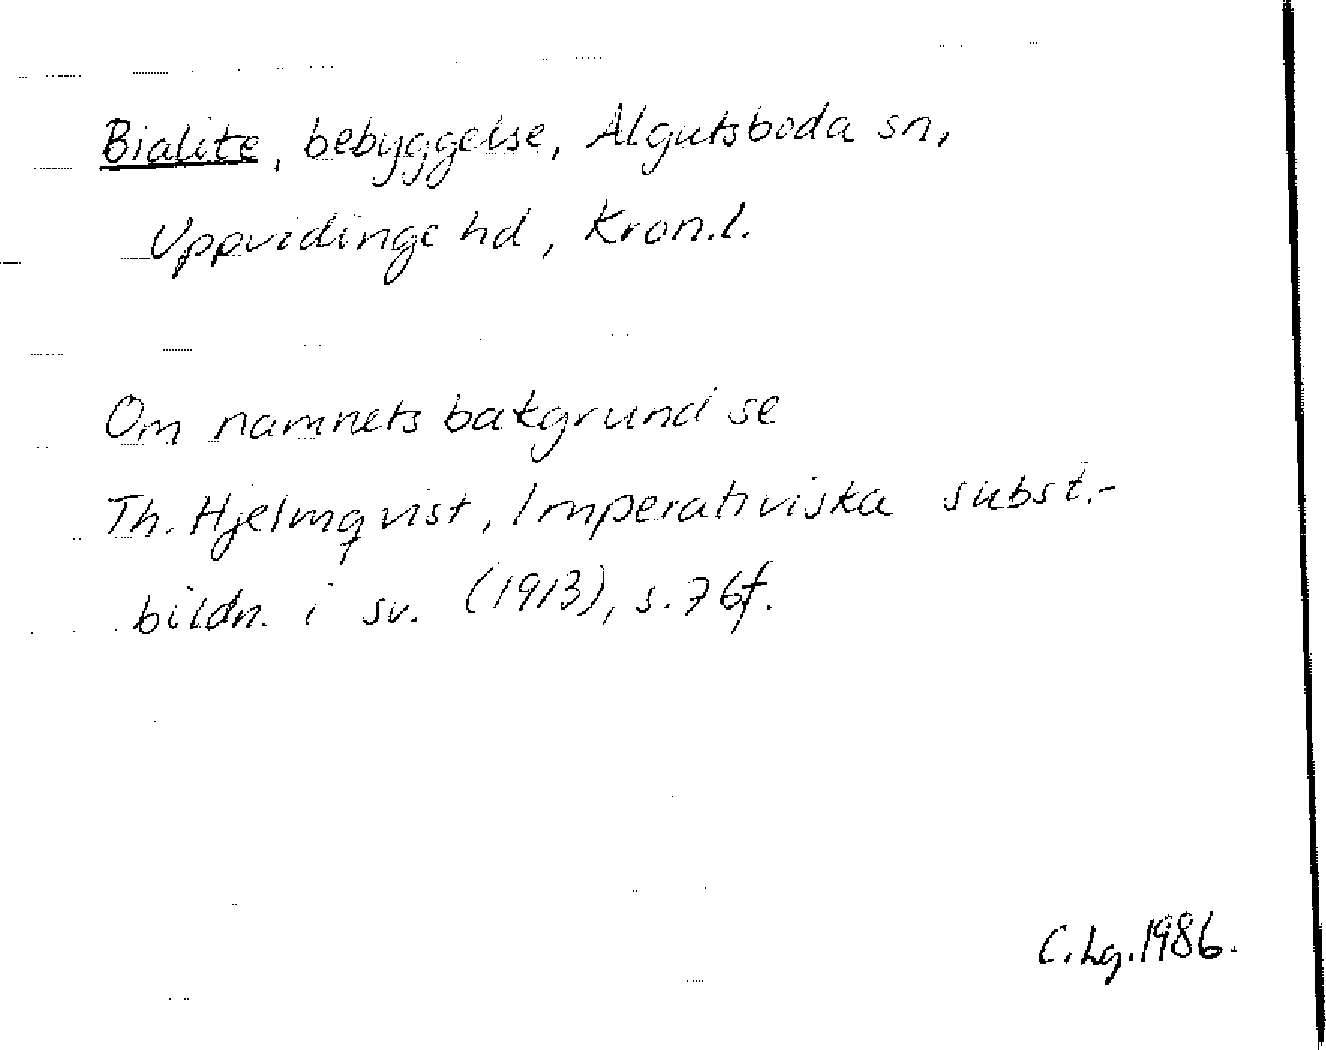 Bialite, bebyggelse, Algutsboda sn,
Uppvidinge hd, Kron.l.
Om namnets bakgrund se
Th. Hjelmqvist, Imperativiska subst.-
bildn. i sv. (1913), s. 76f.
C. Lg. 1986.